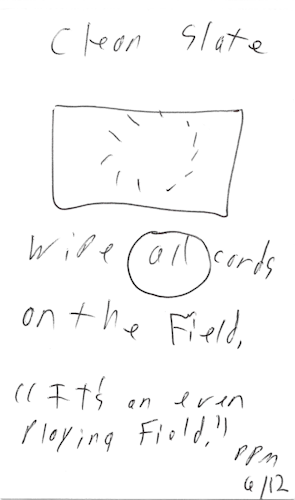 Clean Slate
Wipe all cards
on the Field.
"It's an even
Playing Field."
PPM
6/12